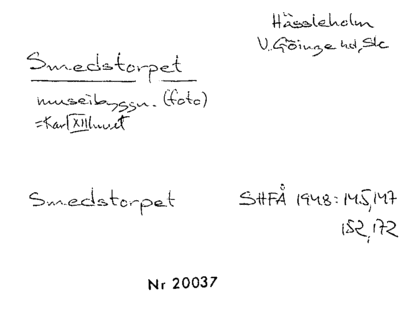 Hässleholm
V. Göinge hd, Sk
Smedstorpet
museibyggn. (foto)
=Karl XII huset
Smedstorpet
SHFÅ 1948: 145, 147
152, 172
Nr 20037